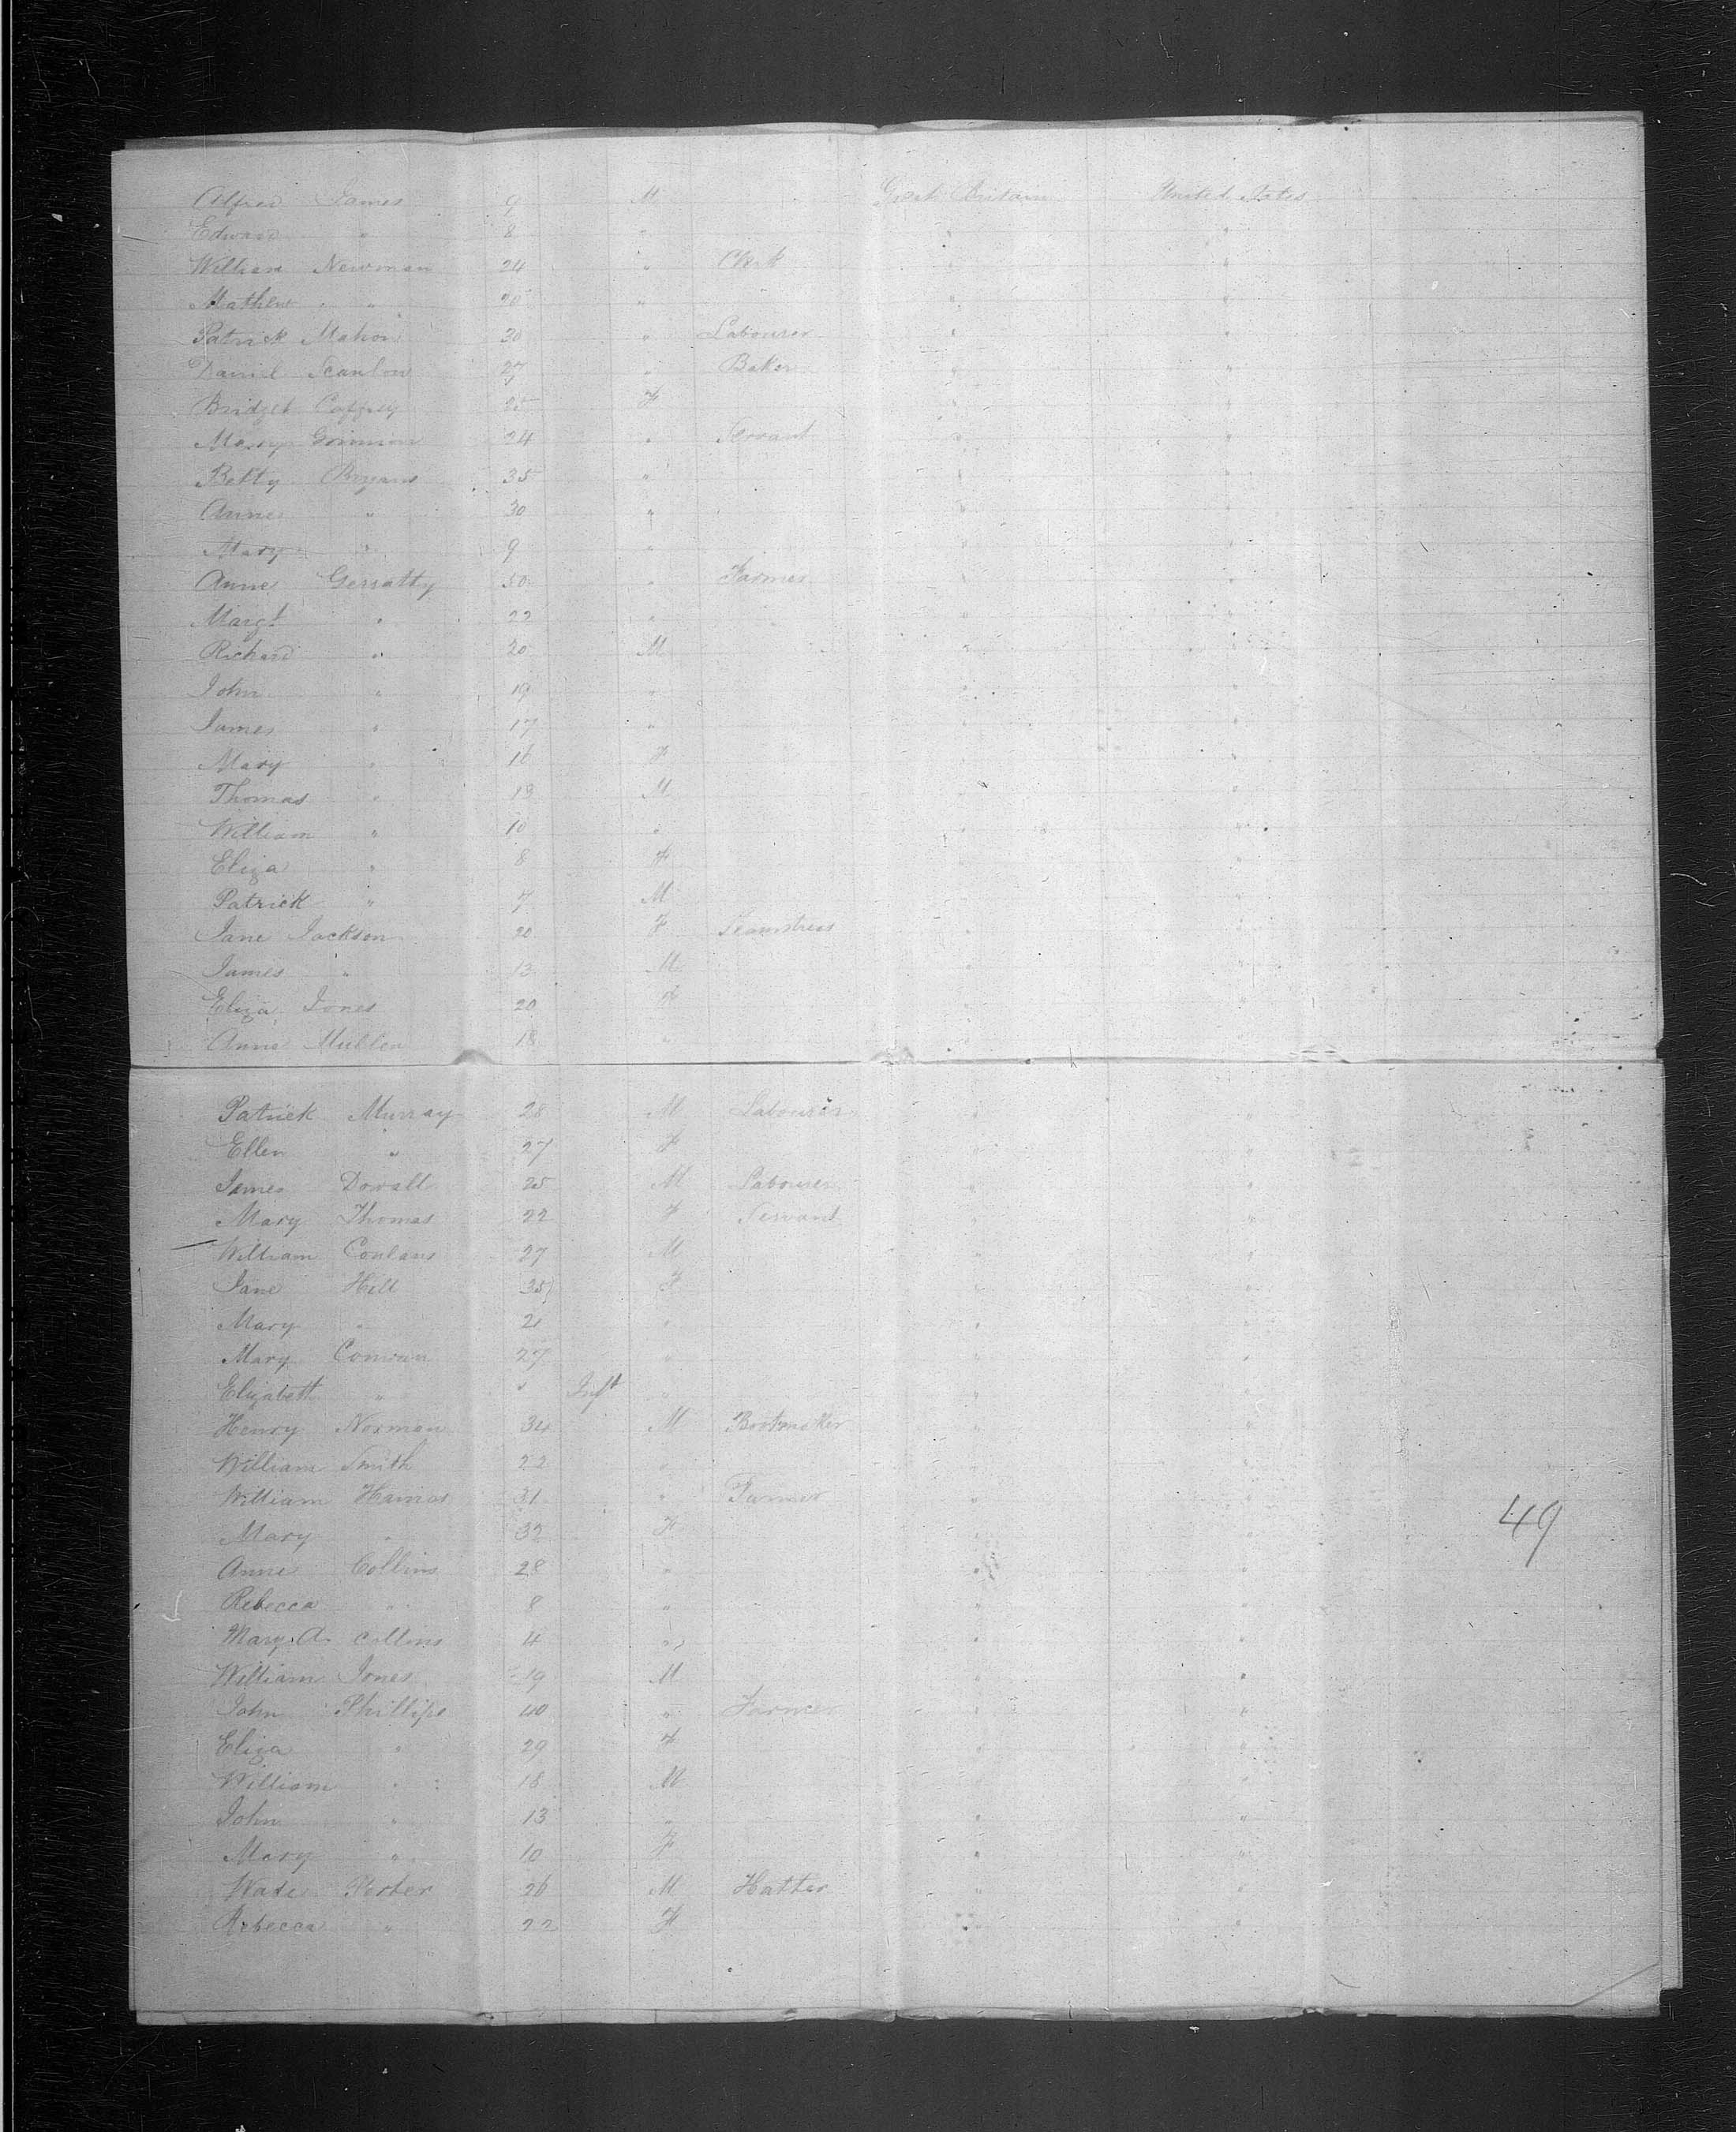 Alfred James 9 M Great Britain United States
Edward " 8 " " "
William Newman 24 " Clerk " "
Mathew " 20 " " "
Patrick Mahon 30 " Labourer " "
Daniel Scanlow 27 " Baker " "
Bridget Caffrey 25 F " "
Mary 24 " Servant " "
Betty Bryans 35 " " "
Anne " 30 " " "
Mary " 9 " " "
Anne Gerratty 50 " Farmer " "
Margt " 22 " " "
Richard " 20 M " "
John " 19 " " "
James " 17 " " "
Mary " 16 F " "
Thomas " 13 M " "
William " 10 " " "
Eliza " 8 F " "
Patrick " 7 M " "
Jane Jackson 20 F Seamstress " "
James " 13 M " "
Eliza Jones 20 F " "
Anne Mullen 18 " " "
Patrick Murray 28 M Labourer " "
Ellen " 27 F " "
James 25 M Labourer " "
Mary Thomas 22 F Servant " "
William Conlans 27 M " "
Jane Hill 35 F " "
Mary " 21 " " "
Mary 27 " " "
Elizabeth " " Inft " " "
Henry Norman 34 M Bootmaker " "
William Smith 22 " " "
William 31 " " "
Mary " 32 F " "
Anne Collins 28 " " "
Rebecca " 8 " " "
Mary A. Collins 4 " " "
William Jones 19 M " "
John Phillips 40 " Farmer " "
Eliza " 29 F " "
William " 18 M " "
John " 13 " " "
Mary " 10 F " "
Wade Porter 26 M Hatter " "
Rebecca " 22 F " "
49